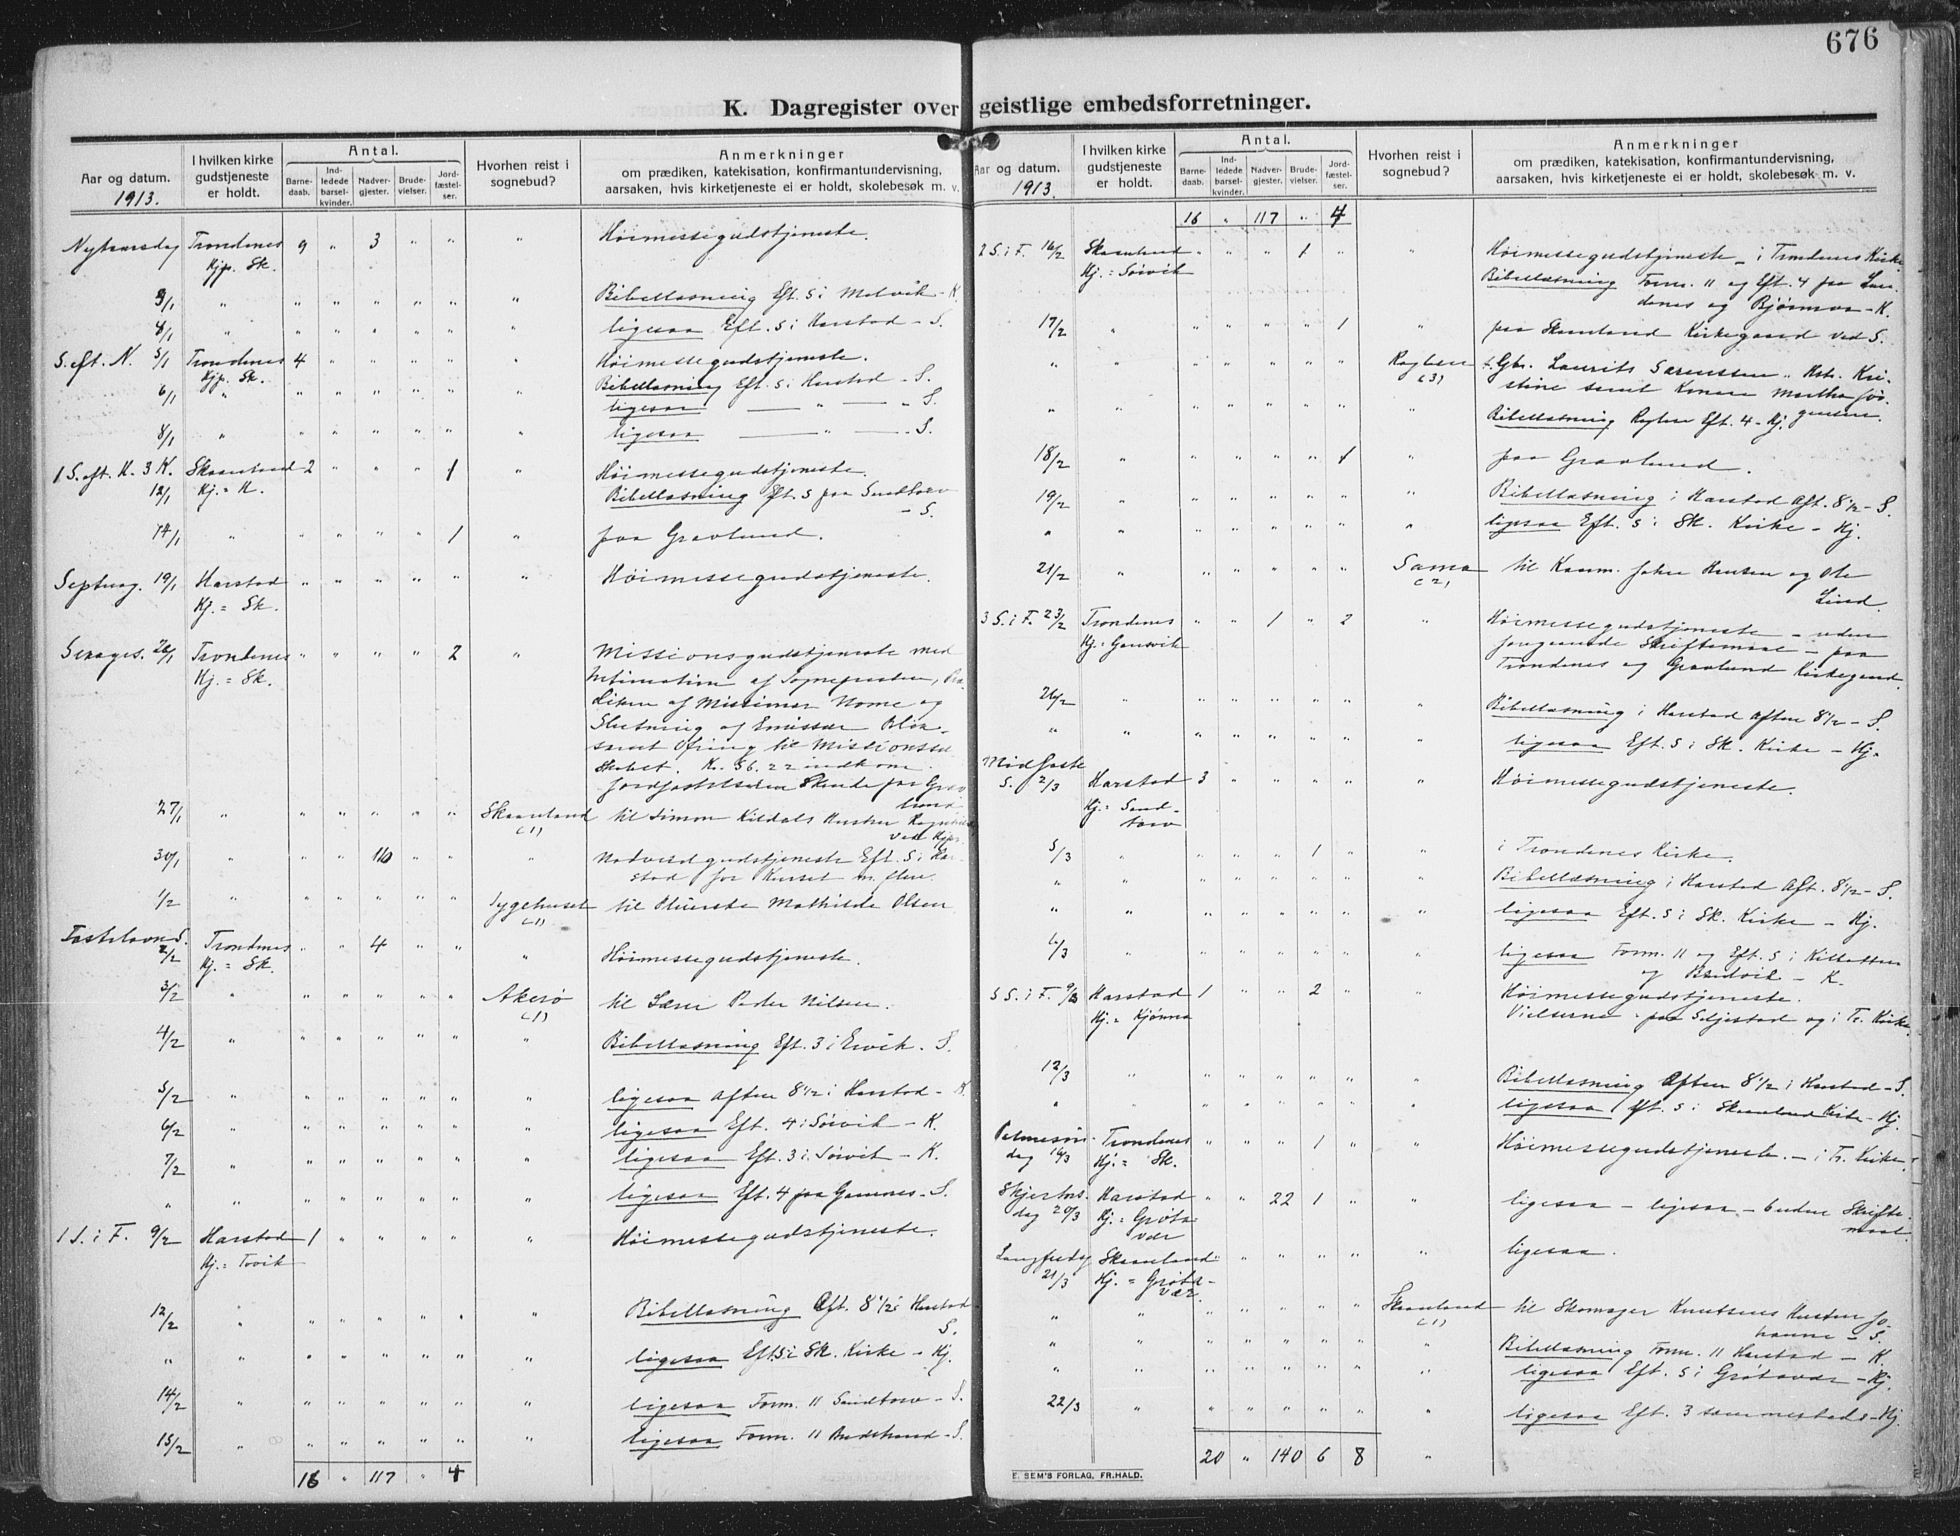 676
K. Dagregister over geistlige embedsforretninger.
Aar og datum. 1913.
I hvilken kirke gudstjeneste er holdt.
Antal.
Barnedaab.
Indledede barselkvinder.
Nadvergjester.
Brudevielser.
Jordfæstelser.
Hvorhen reist i sognebud?
Anmerkninger
om prædiken, katekisation, konfirmantundervisning,
aarsaken, hvis kirketjeneste ei er holdt, skolebesøk m. v.
Nytaarsdag Trondenes 9 " 3 " " " Høimessegudstjeneste.
Kjp. Sk.
3/1 " " " " " " " Bibellæsning Eft. 5 i Melvik - K.
4/1 " " " " " " " ligesaa Eft. 5 i Harstad - S.
S. eft. N. 5/1 Trondenes 4 " " " " " Høimessegudstjeneste.
Kjp. Sk. Bibellæsning Eft. 5 i Harstad - S.
6/1 " " " " " " " ligesaa — " — " S.
8/1 " " " " " " " ligesaa — " — - S.
1 S. eft. H. 3 K. Skaanland 2 " " " 1 " Høimessegudstjeneste.
12/1 Kj. = K. Bibellæsning Eft. 5 paa Sandtorv
- S.
14/1 " " " " " 1 " paa Gravlund.
Septuag. 19/1 Harstad " " " " " " Høimessegudstjeneste.
Kj. = Sk.
Sexages. 26/1 Trondenes " " " " 2 " Missionsgudstjeneste med
Kj. = Sk. Intimation af Sognepresten,
af Missionær Nome og
Slutning af Emissær
samt Ofring til Missionssel
skabet. Kr. 56.22 indkom.
Jordfæstelserne skende paa Grav
lund
27/1 " " " " " " Skaanland til Simon Kildals Hustru
(1) ved Kjp.
30/1 " " " 110 " " " Nadverdgudstjeneste Eft. 5 i Har
stad for Kurset m. flere.
1/2 " " " " " " Sygehuset til Mathilde Olsen
(1)
Fastelavns S.
2/2 Trondenes " " 4 " " " Høimessegudstjeneste.
Kj. = Sk.
3/2 " " " " " " Akerø til Peder Nilsen.
(1)
4/2 " " " " " " " Bibellæsning Eft. 3 i Ervik - S.
5/2 " " " " " " " ligesaa Aften 8 1/2 i Harstad - K
6/2 " " " " " " " ligesaa Eft. 4 i Sørvik - K.
7/2 " " " " " " " ligesaa Eft. 3 i Sørvik - K.
" " " " " " " " ligesaa Eft. 4 paa Gamnes - S.
1 S. i F. 9/2 Harstad 1 " " " " " Høimessegudstjeneste.
Kj. = Tovik
12/2 " " " " " " " Bibellæsning Aft. 8 1/2 i Harstad
S.
" " " " " " " " ligesaa Eft. 5 i Sk. Kirke - Kj.
14/2 " " " " " " " ligesaa Form. 11 Sandtorv - S.
15/2 " " " " " " " ligesaa Form. 11 - S.
16 " 117 " 4
Aar og datum. 1913.
I hvilken kirke gudstjeneste er holdt.
Antal.
Barnedaab.
Indledede barselkvinder.
Nadvergjester.
Brudevielser.
Jordfæstelser.
Hvorhen reist i sognebud?
Anmerkninger
om prædiken, katekisation, konfirmantundervisning,
aarsaken, hvis kirketjeneste ei er holdt, skolebesøk m. v.
16 " 117 " 4
2 S. i F. 16/2 Skaanland " " " 1 " " Høimessegudstjeneste - i Trondenes Kirke
Kj. = Sørvik Bibellæsning Form. 11 og Eft. 4 paa
og - K.
17/2 " " " " " 1 " paa Skaanland Kirkegaard ved S.
" " " " " " " Røglen t. Gbr. Laurits Sørensen, Hstr. Kri-
(3) stine samt Konen Martha Jør-
gensen.
" " " " " " " " Bibellæsning Røglen Eft. 4 - Kj.
18/2 " " " " " 1 " paa Gravlund.
19/2 " " " " " " " Bibellæsning i Harstad Aft. 8 1/2 - S.
" " " " " " " " ligesaa Eft. 5 i Sk. Kirke - Kj.
21/2 " " " " " " Sama til Johan Hansen og Ole
(2) Lind.
3 S. i F. 23/2 Trondenes " " 1 " 2 " Høimessegudstjeneste - uden
Kj. = Gausvik foregaaende Skriftemaal - paa
Trondenes og Gravlund Kirkegaard.
26/2 " " " " " " " Bibellæsning i Harstad Aften 8 1/2 - S.
" " " " " " " " ligesaa Eft. 5 i Sk. Kirke - Kj.
Midfaste
S. 2/3 Harstad 3 " " " " " Høimessegudstjeneste.
Kj. = Sand-
torv
5/3 " " " " 1 " " i Trondenes Kirke.
" " " " " " " " Bibellæsning i Harstad Aft. 8 1/2 - S.
" " " " " " " " ligesaa Eft. 5 i Sk. Kirke - Kj.
6/3 " " " " " " " ligesaa Form. 11 og Eft. 5 i Kilbotten
og - K.
5 S. i F. 9/3 Harstad 1 " " 2 " " Høimessegudstjeneste.
Kj. = Kjønna Vielserne - paa Seljestad og i Tr. Kirke.
12/3 " " " " " " " Bibellæsning Aften 8 1/2 i Harstad - S.
" " " " " " " ligesaa Eft. 5 i Skaanland Kirke - Kj.
Palmesøn- Trondenes " " " 1 " " Høimessegudstjeneste. - i Tr. Kirke.
dag 16/3 Kj. = Sk.
Skjertors- Harstad " " 22 1 " " ligesaa - ligesaa - 6 uden Skrifte-
dag 20/3 Kj. = Grøta- maal.
vær
Langfredag Skaanland " " " " " " ligesaa.
21/3 Kj. = Grøta-
vær.
" " " " " " " Skaanland til Skomager Knutsens Hustru Jo-
(1) hanne - S.
" " " " " " " " Bibellæsning Form. 11 Harstad - K.
" " " " " " " " ligesaa Eft. 5 i Grøtavær - Kj.
22/3 " " " " " " " ligesaa Eft. 3 sammesteds - Kj.
20 " 140 6 8 "
E. SEM'S FORLAG, FR.HALD.